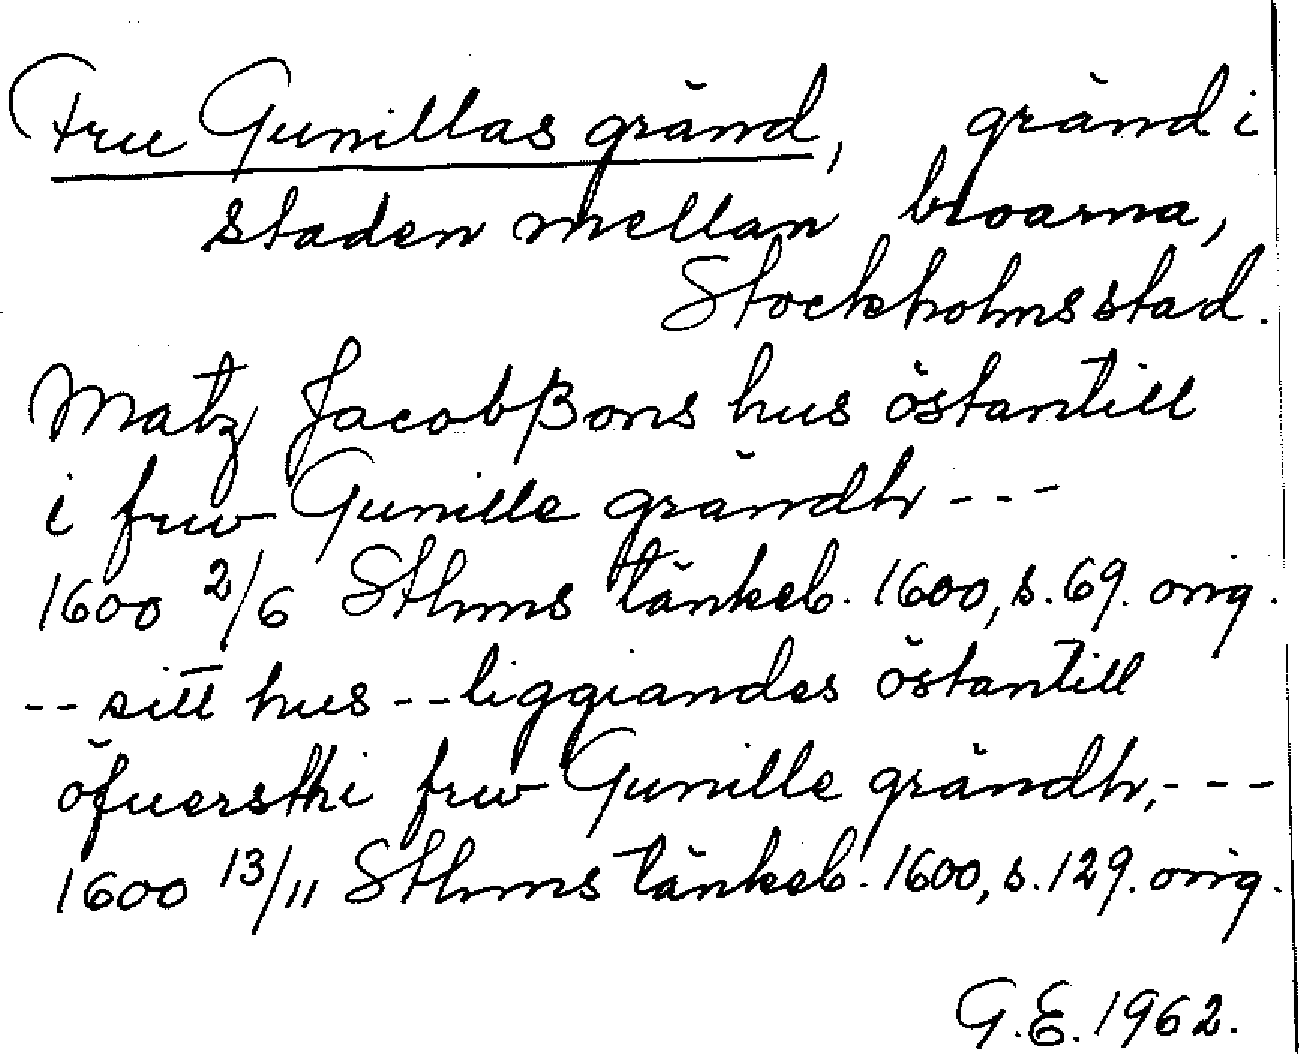 Fru Gunillas gränd, gränd i
staden mellan broarna,
Stockholms stad.
Matz Jacobßons hus östantill
i frw Gunille grändh ---
1600 2/6 Sthms tänkeb. 1600, s. 69. orig.
-- sitt hus -- liggiandes östantill
öfuersth i frw Gunille grändh, ---
1600 13/11 Sthms tänkeb. 1600, s. 129. orig.
G.E. 1962.